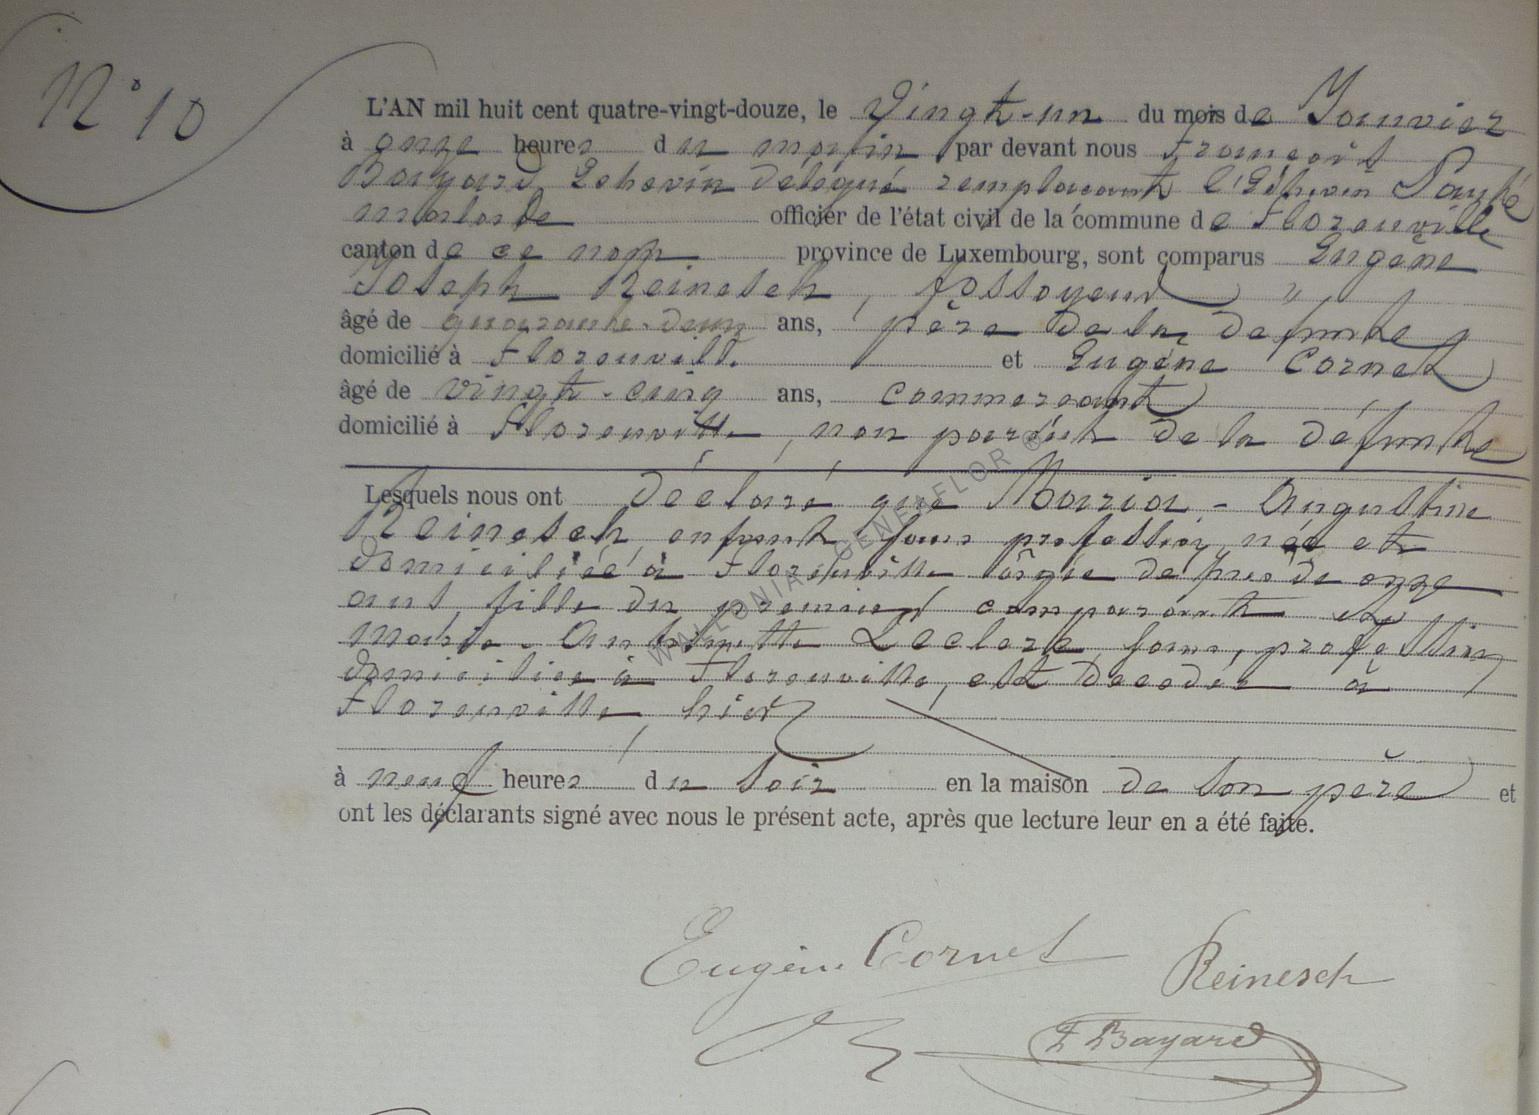 N° 10
L'AN mil huit cent quatre-vingt-douze, le Vingt-un du mois de Janvier
à onze heures du matin par devant nous François
Bayard Echevin délégué remplaçant l'Echevin
malade officier de l'état civil de la commune de Florenville
canton de ce nom province de Luxembourg, sont comparus Eugène
Joseph Reinesch, fossoyeur "
âgé de quarante-deux ans, père de la défunte
domicilié à Florenville et Eugène Cornet
âgé de vingt-cinq ans, commerçant
domicilié à Florenville, non parent de la défunte
Lesquels nous ont déclaré que Maria-Augustine
Reinesch, enfant sans profession, née et
domiciliée à Florenville âgée de près de onze
ans, fille du premier comparant et de
Marie-Antoinette Leclere sans profession
domiciliée à Florenville, est décédée à
Florenville hier
à neuf heures du soir en la maison de son père et
ont les déclarants signé avec nous le présent acte, après que lecture leur en a été faite.
Eugène Cornet Reinesch
F Bayard
WALLONIA GENEAFLOR ©